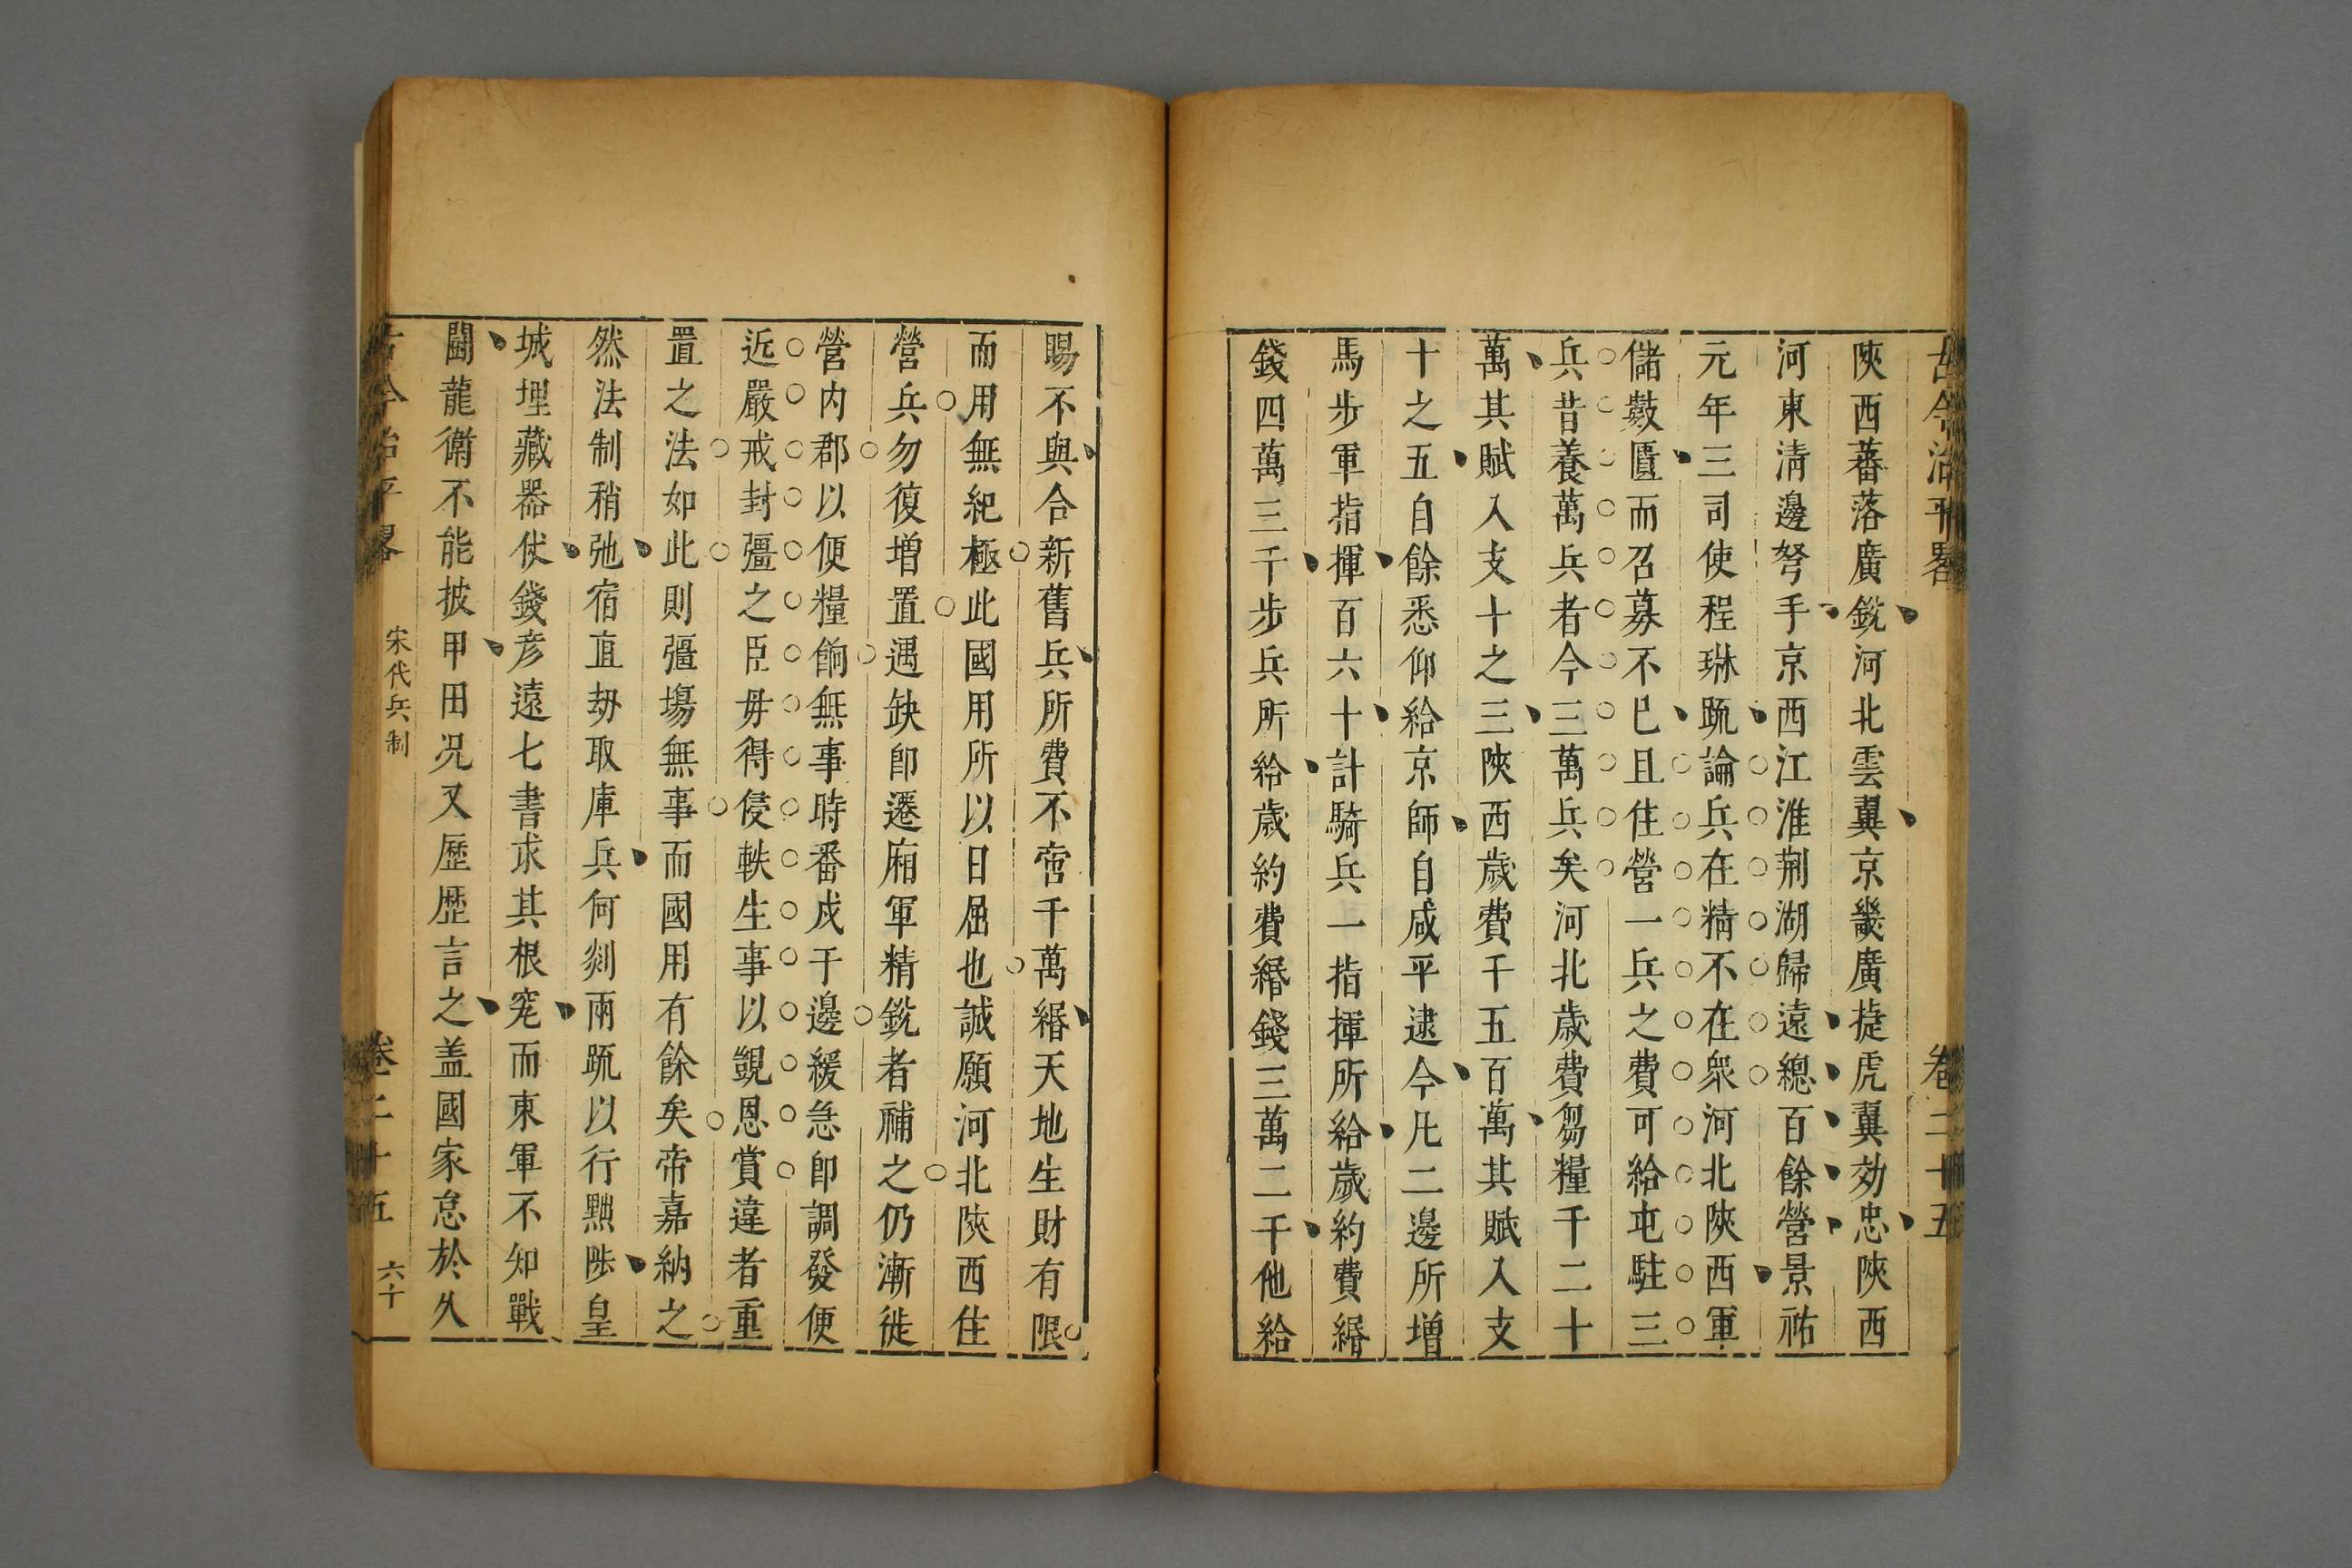 古今治平畧 卷二十五
陜西蕃落廣銳河北雲翼京畿廣捷虎翼効忠陜西
河東淸邊弩手京西江淮荆湖歸遠總百餘營景祐
元年三司使程琳䟽論兵在精不在衆河北陜西軍
儲數匱而召募不已且住營一兵之費可給屯駐三
兵昔養萬兵者今三萬兵矣河北歲費芻糧千二十
萬其賦入支十之三陜西歲費千五百萬其賦入支
十之五自餘悉仰給京師自咸平逮今凡二邊所增
馬步軍指揮百六十計騎兵一指揮所給歲約費緡
錢四萬三千步兵所給歲約費緡錢三萬二千他給
賜不與合新舊兵所費不啻千萬緡天地生財有限
而用無紀極此國用所以日屈也誠願河北陜西住
營兵勿復增置遇缺卽遷廂軍精銳者補之仍漸徙
營内郡以便糧餉無事時番戍于邊緩急卽調發便
近嚴戒封彊之臣毋得侵軼生事以覬恩賞違者重
置之法如此則彊場無事而國用有餘矣帝嘉納之
然法制稍弛宿直刼取庫兵何剡兩䟽以行黜陟皇
城埋藏器仗錢彦遠七書求其根究而東軍不知戰
鬪龍衛不能披甲田况又歷歷言之盖國家怠於久
古今治平畧 宋代兵制 卷二十五 六十